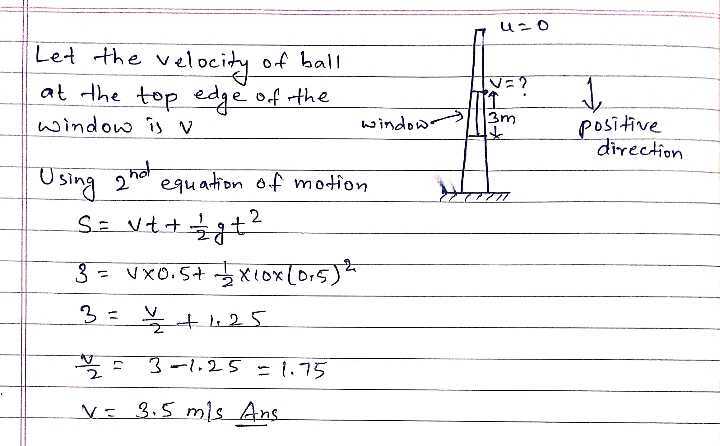 u=0
Let the velocity of ball
at the top edge of the
window is v
v=?
window
3m
positive
direction
Using 2nd equation of motion
S= vt + 1/2 gt²
3 = v×0.5 + 1/2 ×10×(0.5)²
3 = v/2 + 1.25
v/2 = 3-1.25 = 1.75
v= 3.5 m/s Ans